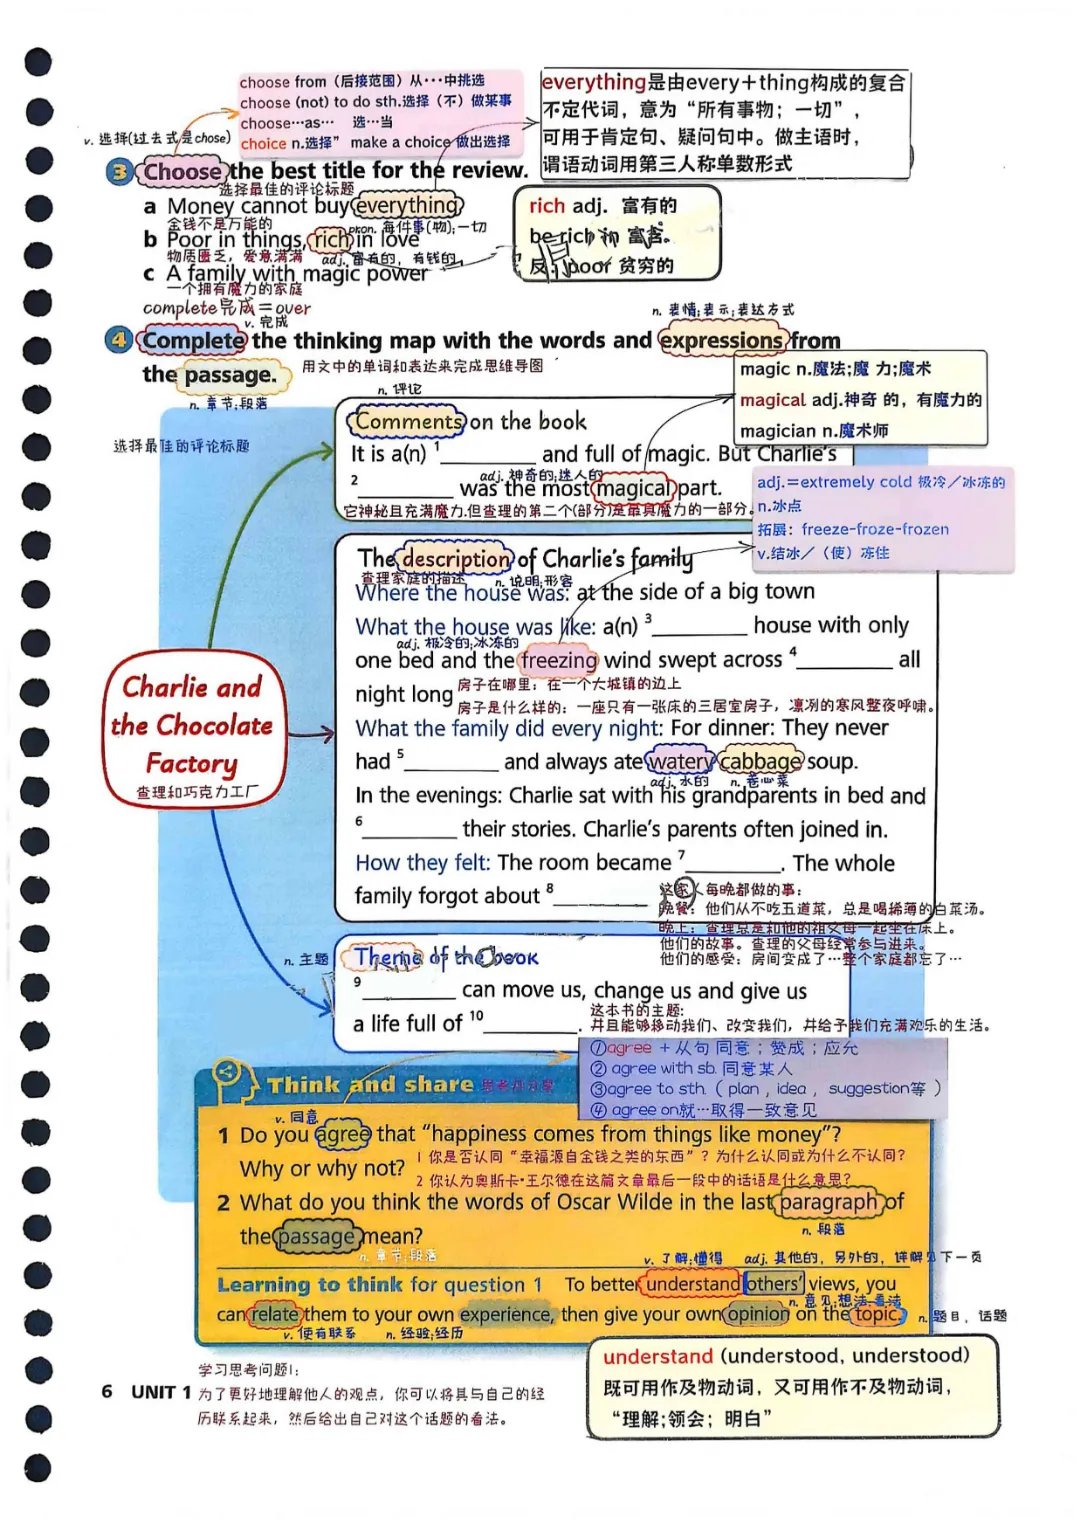 choose from（后接范围）从···中挑选
choose (not) to do sth.选择（不）做某事
choose···as··· 选···当
choice n.选择” make a choice 做出选择
v. 选择(过去式是chose)
everything是由every＋thing构成的复合
不定代词，意为“所有事物；一切”，
可用于肯定句、疑问句中。做主语时，
谓语动词用第三人称单数形式
3 Choose the best title for the review.
选择最佳的评论标题
a Money cannot buy everything
金钱不是万能的
pron. 每件事(物);一切
b Poor in things, rich in love
物质匮乏，爱意满满
adj. 富有的，有钱的
c A family with magic power
一个拥有魔力的家庭
rich adj. 富有的
be rich
反：poor 贫穷的
complete完成＝over
v. 完成
n. 表情;表示;表达方式
4 Complete the thinking map with the words and expressions from
the passage.
用文中的单词和表达来完成思维导图
n. 章节;段落
magic n.魔法;魔 力;魔术
magical adj.神奇 的，有魔力的
magician n.魔术师
选择最佳的评论标题
n. 评论
Comments on the book
It is a(n) 1__________ and full of magic. But Charlie's
adj. 神奇的;迷人的
2__________ was the most magical part.
它神秘且充满魔力.但查理的第二个(部分)是最具魔力的一部分.
adj.＝extremely cold 极冷／冰冻的
n.冰点
拓展：freeze-froze-frozen
v.结冰／（使）冻住
The description of Charlie's family
查理家庭的描述
n. 说明;形容
Where the house was: at the side of a big town
What the house was like: a(n) 3__________ house with only
adj. 极冷的;冰冻的
one bed and the freezing wind swept across 4__________ all
night long
房子在哪里：在一个大城镇的边上
房子是什么样的：一座只有一张床的三居室房子，凛冽的寒风整夜呼啸。
What the family did every night: For dinner: They never
had 5__________ and always ate watery cabbage soup.
adj. 水的 n. 卷心菜
In the evenings: Charlie sat with his grandparents in bed and
6__________ their stories. Charlie's parents often joined in.
How they felt: The room became 7__________. The whole
family forgot about 8__________
这家人每晚都做的事：
晚餐：他们从不吃五道菜，总是喝稀薄的白菜汤。
晚上：查理总是和他的祖父母一起坐在床上。
他们的故事。查理的父母经常参与进来。
他们的感受：房间变成了···整个家庭都忘了···
Charlie and
the Chocolate
Factory
查理和巧克力工厂
n. 主题
Theme of the book
9__________ can move us, change us and give us
a life full of 10__________.
这本书的主题：
并且能够移动我们、改变我们，并给予我们充满欢乐的生活。
①agree ＋从句 同意；赞成；应允
② agree with sb. 同意某人
③agree to sth.（ plan , idea , suggestion等 ）
④ agree on就···取得一致意见
Think and share 思考并分享
v. 同意
1 Do you agree that “happiness comes from things like money”?
Why or why not?
1 你是否认同“幸福源自金钱之类的东西”？为什么认同或为什么不认同？
2 你认为奥斯卡·王尔德在这篇文章最后一段中的话语是什么意思？
2 What do you think the words of Oscar Wilde in the last paragraph of
n. 段落
the passage mean?
n. 章节;段落
v. 了解;懂得 adj. 其他的，另外的，详解见下一页
Learning to think for question 1 To better understand others' views, you
n. 意见;想法;看法
can relate them to your own experience, then give your own opinion on the topic.
v. 使有联系 n. 经验;经历
n. 题目，话题
understand (understood, understood)
既可用作及物动词，又可用作不及物动词，
“理解;领会；明白”
学习思考问题1：
6 UNIT 1
为了更好地理解他人的观点，你可以将其与自己的经
历联系起来，然后给出自己对这个话题的看法。